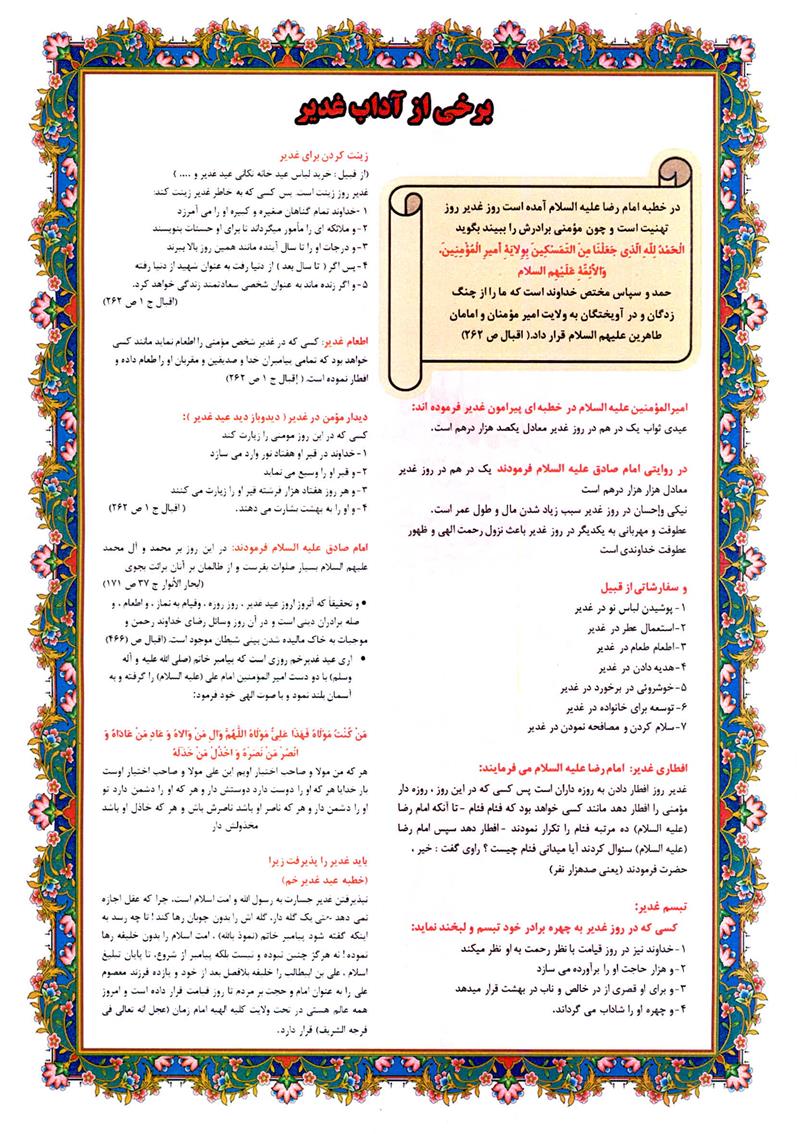 برخی از آداب غدیر
در خطبه امام رضا علیه السلام آمده است روز غدیر روز
تهنیت است و چون مؤمنی برادرش را ببیند بگوید
الحَمْدُ لِلهِ الَّذِی جَعَلَنَا مِنَ التَمَسّکِینَ بِوِلایَةِ أَمِیرِ المُؤْمِنِینَ،
وَالأَئِمَّةِ عَلَیْهِم السلام
حمد و سپاس مختص خداوند است که ما را از چنگ
زدگان و در آویختگان به ولایت امیر مؤمنان و امامان
طاهرین علیهم السلام قرار داد.( اقبال ص ۲۶۲)
امیرالمؤمنین علیه السلام در خطبه ای پیرامون غدیر فرموده اند:
عیدی ثواب یک در هم در روز غدیر معادل یکصد هزار درهم است.
در روایتی امام صادق علیه السلام فرمودند یک در هم در روز غدیر
معادل هزار هزار درهم است
نیکی وإحسان در روز غدیر سبب زیاد شدن مال و طول عمر است.
عطوفت و مهربانی به یکدیگر در روز غدیر باعث نزول رحمت الهی و ظهور
عطوفت خداوندی است
و سفارشاتی از قبیل
۱- پوشیدن لباس نو در غدیر
۲-استعمال عطر در غدیر
۳-اطعام طعام در غدیر
۴-هدیه دادن در غدیر
۵-خوشروئی در برخورد در غدیر
۶-توسعه برای خانواده در غدیر
۷-سلام کردن و مصافحه نمودن در غدیر
افطاری غدیر: امام رضا علیه السلام می فرمایند:
غدیر روز افطار دادن به روزه داران است پس کسی که در این روز ، روزه دار
مؤمنی را افطار دهد مانند کسی خواهد بود که فئام فئام - تا آنکه امام رضا
(علیه السلام) ده مرتبه فئام را تکرار نمودند - افطار دهد سپس امام رضا
(علیه السلام) سئوال کردند آیا میدانی فئام چیست ؟ راوی گفت : خیر ،
حضرت فرمودند (یعنی صدهزار نفر)
تبسم غدیر:
کسی که در روز غدیر به چهره برادر خود تبسم و لبخند نماید:
۱-خداوند نیز در روز قیامت با نظر رحمت به او نظر میکند
۲-و هزار حاجت او را برآورده می سازد
۳-و برای او قصری از در خالص و ناب در بهشت قرار میدهد
۴-و چهره او را شاداب می گرداند.
زینت کردن برای غدیر
(از قبیل : خرید لباس عید خانه تکانی عید غدیر و .... )
غدیر روز زینت است. پس کسی که به خاطر غدیر زینت کند:
۱ -خداوند تمام گناهان صغیره و کبیره او را می آمرزد
۲-و ملائکه ای را مأمور میگرداند تا برای او حسنات بنویسند
۳-و درجات او را تا سال آینده مانند همین روز بالا ببرند
۴-پس اگر ( تا سال بعد ) از دنیا رفت به عنوان شهید از دنیا رفته
۵-و اگر زنده ماند به عنوان شخصی سعادتمند زندگی خواهد کرد.
(اقبال ج ۱ ص ۲۶۲)
اطعام غدیر: کسی که در غدیر شخص مؤمنی را اطعام نماید مانند کسی
خواهد بود که تمامی پیامبران خدا و صدیقین و مقربان او را طعام داده و
افطار نموده است. ( إقبال ج ۱ ص ۲۶۲)
دیدار مؤمن در غدیر ( دیدوباز دید عید غدیر ):
کسی که در این روز مومنی را زیارت کند
۱-خداوند در قبر او هفتاد نور وارد می سازد
۲-و قبر او را وسیع می نماید
۳-و هر روز هفتاد هزار فرشته قبر او را زیارت می کنند
۴-و او را به بهشت بشارت می دهند. ( اقبال ج ۱ ص ۲۶۲)
امام صادق علیه السلام فرمودند: در این روز بر محمد و آل محمد
علیهم السلام بسیار صلوات بفرست و از ظالمان بر آنان برائت بجوی
(بحار الأنوار ج ۳۷ ص ۱۷۱)
• و تحقیقاً که آنروز (روز عید غدیر ، روز روزه ، وقیام به نماز ، و اطعام ، و
صله برادران دینی است و در آن روز وسائل رضای خداوند رحمن و
موجبات به خاک مالیده شدن بینی شیطان موجود است. (اقبال ص ۴۶۶)
• اری عید غدیرخم روزی است که پیامبر خاتم (صلی الله علیه و آله
وسلم) با دو دست امیر المؤمنین امام علی (علیه السلام) را گرفته و به
آسمان بلند نمود و با صوت الهی خود فرمود:
مَنْ کُنْتُ مَوْلَاهُ فَهَذَا عَلِیٌّ مَوْلَاهُ اللَّهُمَّ وَالِ مَنْ وَالاهُ وَ عَادِ مَنْ عَادَاهُ وَ
انْصُرْ مَنْ نَصَرَهُ وَ اخْذُلْ مَنْ خَذَلَهُ
هر که من مولا و صاحب اختیار اویم این علی مولا و صاحب اختیار اوست
بار خدایا هر که او را دوست دارد دوستش دار و هر که او را دشمن دارد تو
او را دشمن دار و هر که ناصر او باشد ناصرش باش و هر که خاذل او باشد
مخذولش دار
باید غدیر را پذیرفت زیرا
(خطبه عید غدیر خم)
نپذیرفتن غدیر جسارت به رسول الله و امت اسلام است، چرا که عقل اجازه
نمی دهد حتی یک گله دار، گله اش را بدون چوبان رها کند! تا چه رسد به
اینکه گفته شود پیامبر خاتم (نعوذ بالله) ، امت اسلام را بدون خلیفه رها
نموده! نه هرگز چنین نبوده و نیست بلکه پیامبر از شروع، تا پایان تبلیغ
اسلام ، علی بن ابیطالب را خلیفه بلافصل بعد از خود و یازده فرزند معصوم
علی را به عنوان امام و حجت بر مردم تا روز قیامت قرار داده است و امروز
همه عالم هستی در تحت ولایت کلیه الهیه امام زمان (عجل الله تعالی فی
فرجه الشریف) قرار دارد.